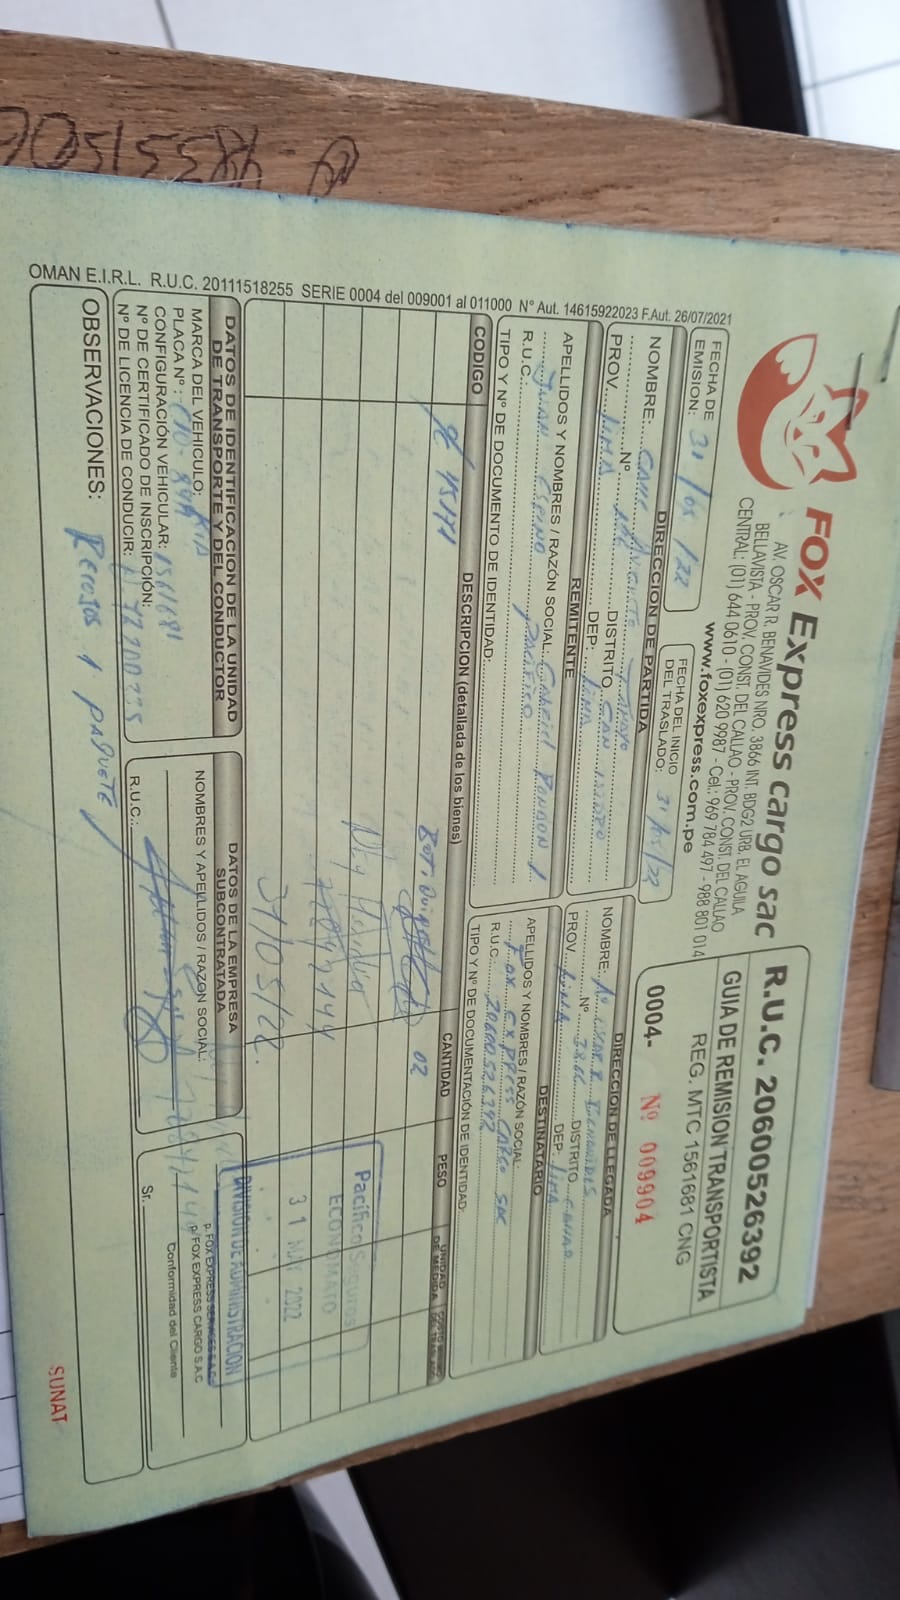 FOX Express cargo sac
AV. OSCAR R. BENAVIDES NRO. 3866 INT. BDG2 URB. EL AGUILA
BELLAVISTA - PROV. CONST. DEL CALLAO - PROV. CONST. DEL CALLAO
CENTRAL: (01) 644 0610 - (01) 620 9987 - Cel.: 969 784 497 - 988 801 014
www.foxexpress.com.pe
R.U.C. 20600526392
GUIA DE REMISION TRANSPORTISTA
REG. MTC 1561681 CNG
0004- Nº 009904
FECHA DE EMISION: 31/05/22
FECHA DEL INICIO DEL TRASLADO: 31/05/22
DIRECCION DE PARTIDA
NOMBRE:
Nº DISTRITO SAN ISIDRO
PROV. LIMA DEP. LIMA
REMITENTE
APELLIDOS Y NOMBRES / RAZÓN SOCIAL:
JUAN ESPINO PACIFICO
R.U.C.
TIPO Y Nº DE DOCUMENTO DE IDENTIDAD:
DIRECCION DE LLEGADA
NOMBRE: Av. OSCAR R. BENAVIDES
Nº 3866 DISTRITO
PROV. LIMA DEP. LIMA
DESTINATARIO
APELLIDOS Y NOMBRES / RAZON SOCIAL:
FOX EXPRESS CARGO SAC
R.U.C. 20600526392
TIPO Y Nº DE DOCUMENTACIÓN DE IDENTIDAD:
CODIGO DESCRIPCION (detallada de los bienes) CANTIDAD PESO UNIDAD DE MEDIDA
02
31/05/22.
Pacífico Seguros
ECONOMATO
31 MAY 2022
DIVISION DE ADMINISTRACION
DATOS DE IDENTIFICACION DE LA UNIDAD DE TRANSPORTE Y DEL CONDUCTOR
MARCA DEL VEHICULO: KIA
PLACA Nº:
CONFIGURACIÓN VEHICULAR: 1561681
Nº DE CERTIFICADO DE INSCRIPCIÓN:
Nº DE LICENCIA DE CONDUCIR:
DATOS DE LA EMPRESA SUBCONTRATADA
NOMBRES Y APELLIDOS / RAZON SOCIAL:
R.U.C.:
p. FOX EXPRESS SERVICES S.A.C
p/ FOX EXPRESS CARGO S.A.C
Conformidad del Cliente
Sr.
OBSERVACIONES: Recojos 1 paquete
SUNAT
OMAN E.I.R.L. R.U.C. 20111518255 SERIE 0004 del 009001 al 011000 N° Aut. 14615922023 F.Aut. 26/07/2021